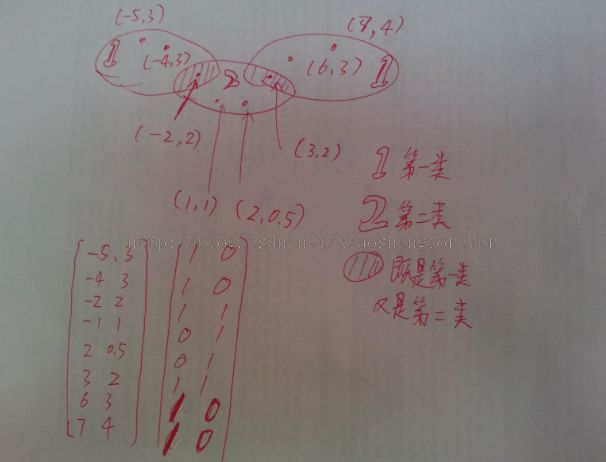 (-5,3)
(7,4)
1
(-4,3)
2
(6,3)
1
(-2,2)
(3,2)
(1,1)
(2,0.5)
1 第一类
2 第二类
http://blog.csdn.net/xiaoshengforever
既是第一类
又是第二类
-5,3 1 0
-4 3 1 0
-2 2 1 1
-1 1 0 1
2 0.5 0 1
3 2 1 1
6 3 1 0
7 4 1 0